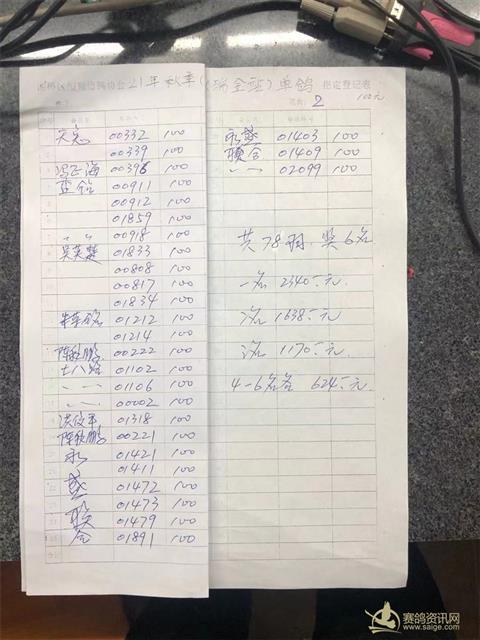 21年秋季(瑞金站)单鸽 指定登记表
页数: 2 100元
00332 100
00339 100
冯正海 00396 100
00911 100
00912 100
01859 100
〃 〃 00918 100
吴英楚 01833 100
00808 100
00817 100
01834 100
01212 100
01214 100
陈秋鹏 00222 100
土八路 01102 100
〃 〃 01106 100
〃 〃 00002 100
洪俊丰 01318 100
陈秋鹏 00221 100
永 01421 100
01411 100
盛 01472 100
01473 100
联 01479 100
合 01891 100
永盛 01403 100
联合 01409 100
〃 〃 02099 100
共78羽,奖6名
一名 2340.元
次名 1638.元
次名 1170.元
4-6名各 624.元
赛鸽资讯网
www.saige.com